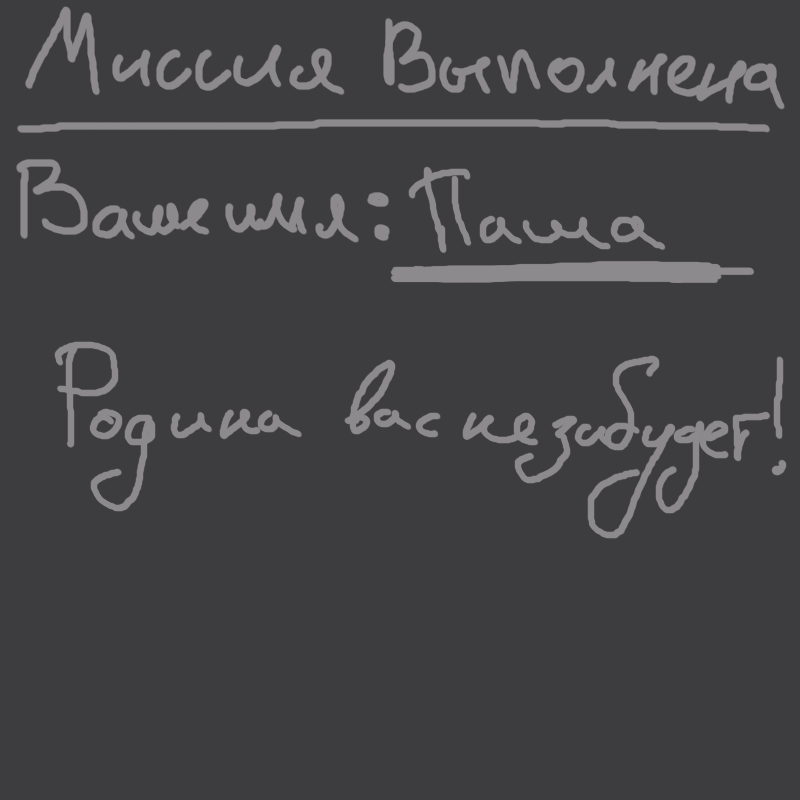 Миссия Выполнена
Ваше имя: Паша
Родина вас не забудет!